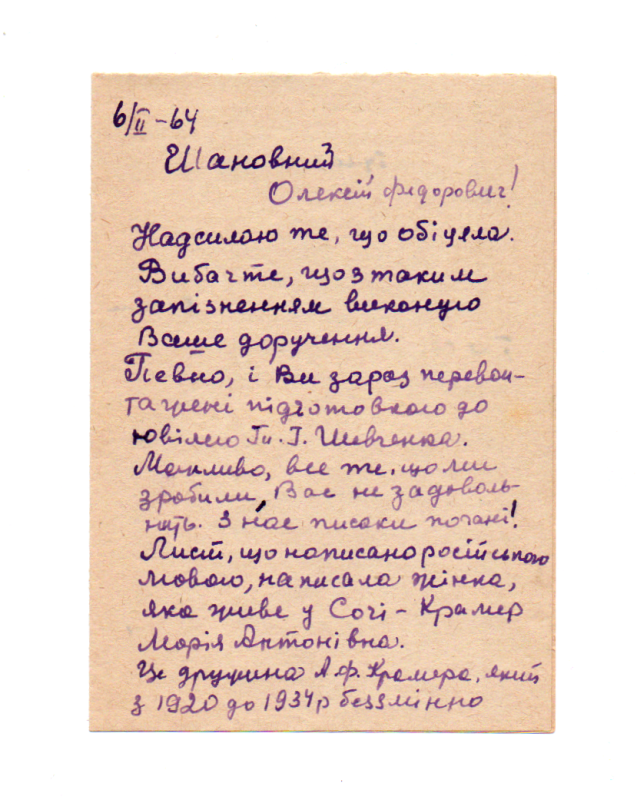 6/II – 64
Шановний
Олексій Федорович!
Надсилаю те, що обіцяла.
Вибачте, що з таким
запізненням виконую
Ваше доручення.
Певно, і Ви зараз переван-
тажені підготовкою до
ювілею Т. Г. Шевченка.
Можливо, все те, що ми
зробили, Вас не задоволь-
нить. З нас писаки погані!
Лист, що написано російською
мовою, написала жінка,
яка живе у Сочі – Крамер
Марія Антонівна.
Це дружина А. Ф. Крамера, який
з 1920 до 1934 р беззмінно